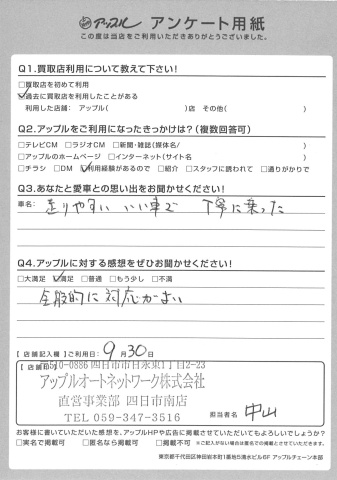 アップル アンケート用紙
この度は当店をご利用いただきありがとうございました。
Q1.買取店利用について教えて下さい!
□買取店を初めて利用
□過去に買取店を利用したことがある
利用した店舗: アップル( )店 その他( )
Q2.アップルをご利用になったきっかけは?(複数回答可)
□テレビCM □ラジオCM □新聞・雑誌(媒体名/ )
□アップルのホームページ □インターネット(サイト名 )
□チラシ □DM □利用経験があるので □紹介 □スタッフに誘われて □通りがかりで
Q3.あなたと愛車との思い出をお聞かせください!
車名: 走りやすい いい車で 丁寧に乗った
Q4.アップルに対する感想をぜひお聞かせください!
□大満足 □満足 □普通 □もう少し □不満
全般的に対応がよい
【店舗記入欄】ご利用日: 9月30日
【店舗印】
〒510-0886 四日市市日永東1丁目2-23
アップルオートネットワーク株式会社
直営事業部 四日市南店
TEL 059-347-3516
担当者名 中山
お客様に書いていただいた感想を、アップルHPや広告に掲載させていただいてもよろしいでしょうか?
□実名で掲載可 □匿名なら掲載可 □掲載不可 ※ご記入がない場合は匿名での掲載とさせていただきます。
東京都千代田区神田岩本町1番地5清水ビル6F アップルチェーン本部